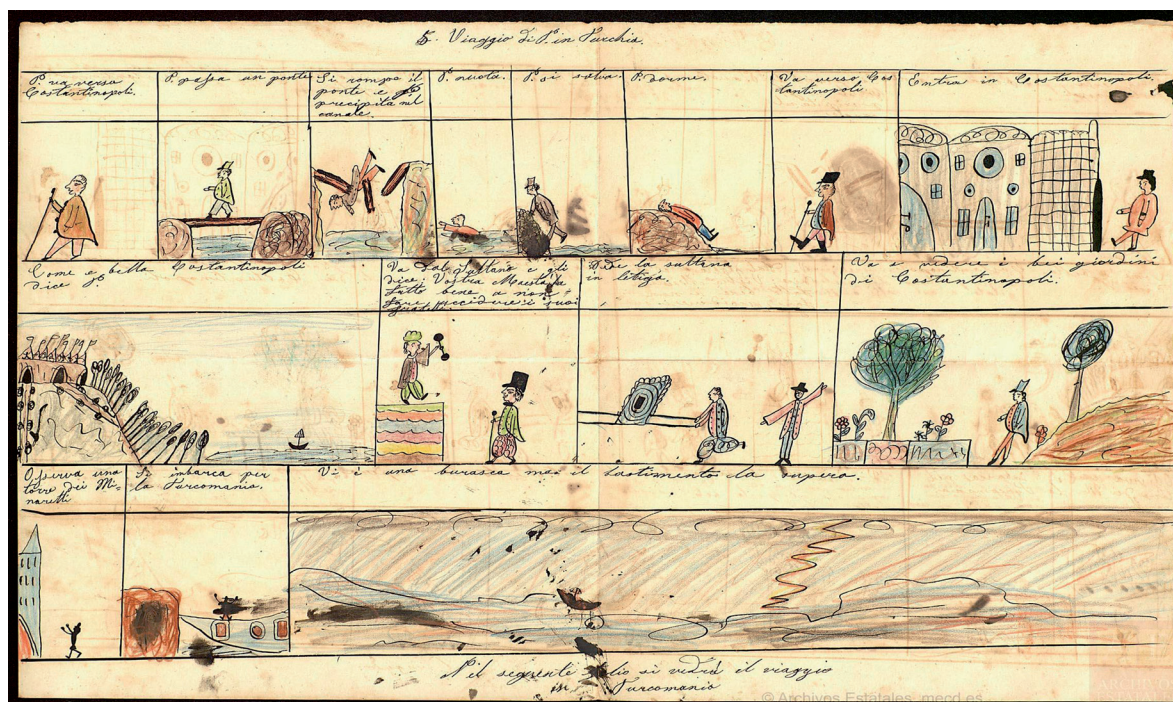 5. Viaggio di P. in Turchia.
P. va verso
Costantinopoli.
P. passa un ponte
Si rompe il
ponte e
precipita nel
canale.
P. nuota.
P. si salva.
P. dorme.
Va verso Cos
tantinopoli
Entra in Costantinopoli.
Come è bella Costantinopoli
dice P.
Va dal Sultano e gli
dice Vostra Maestà
fatto bene a non
i suoi
la sultana
in letiga.
Va a vedere i bei giardini
di Costantinopoli.
Osserva una
torre dei Mi-
naretti
Si imbarca per
la Turcomania.
Vi è una burasca ma il bastimento la supera.
Nel seguente folio si vedrà il viaggio
in Turcomania
© Archivos Estatales, mecd.es
ARCHIVOS
ESTATALES